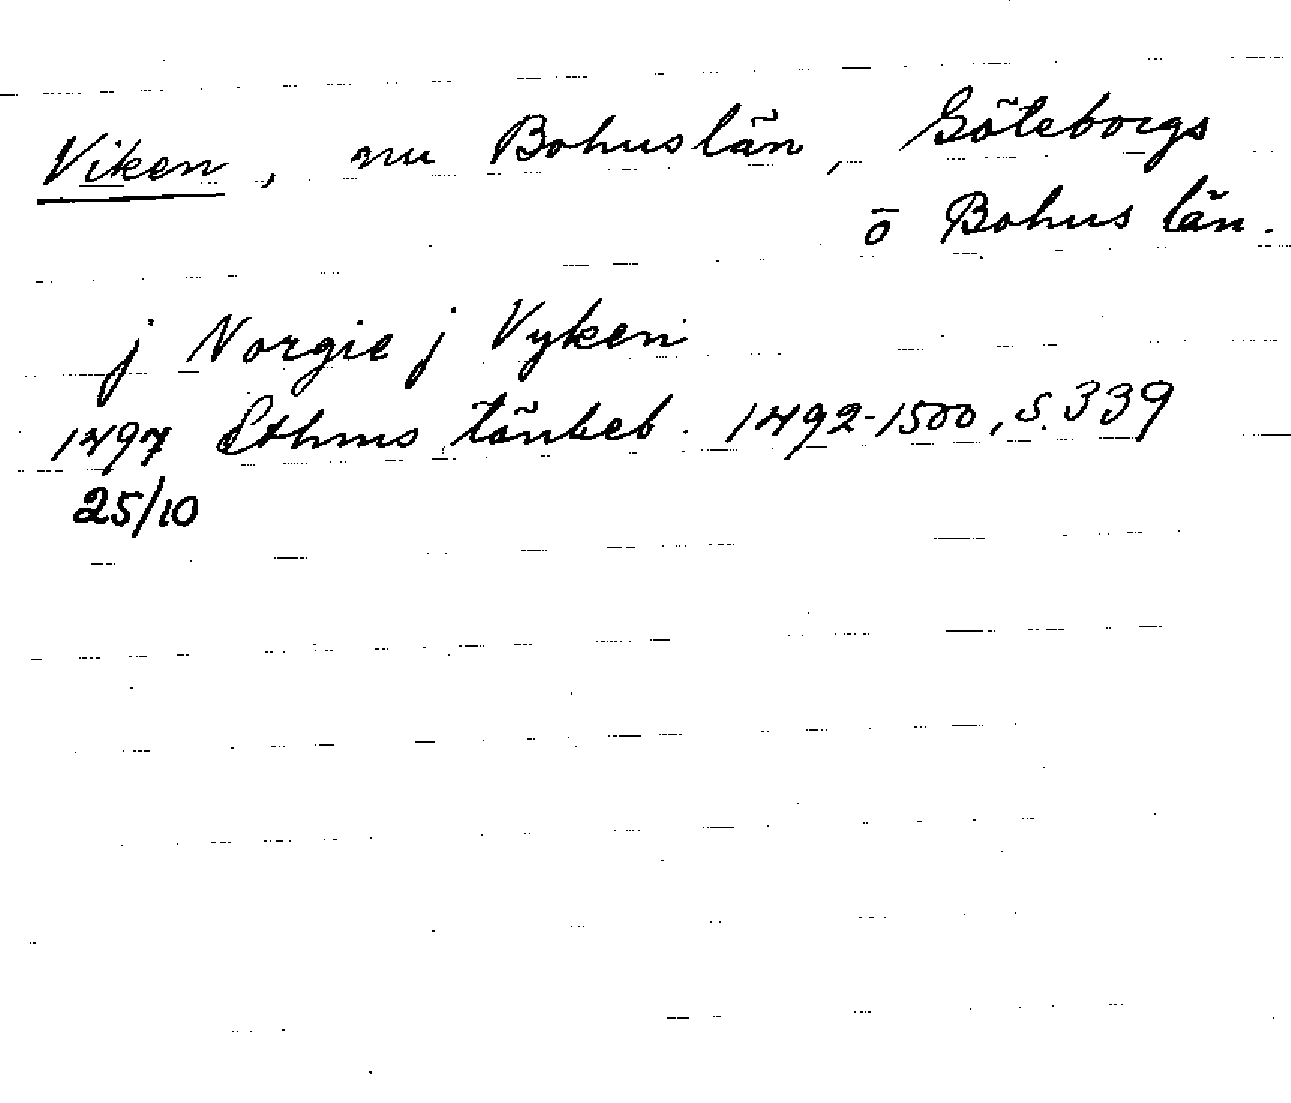 Viken, nu Bohuslän, Göteborgs
o Bohus län.
j Norgie j Vyken
1497 Sthms tänkeb. 1492-1500, s. 339
25/10